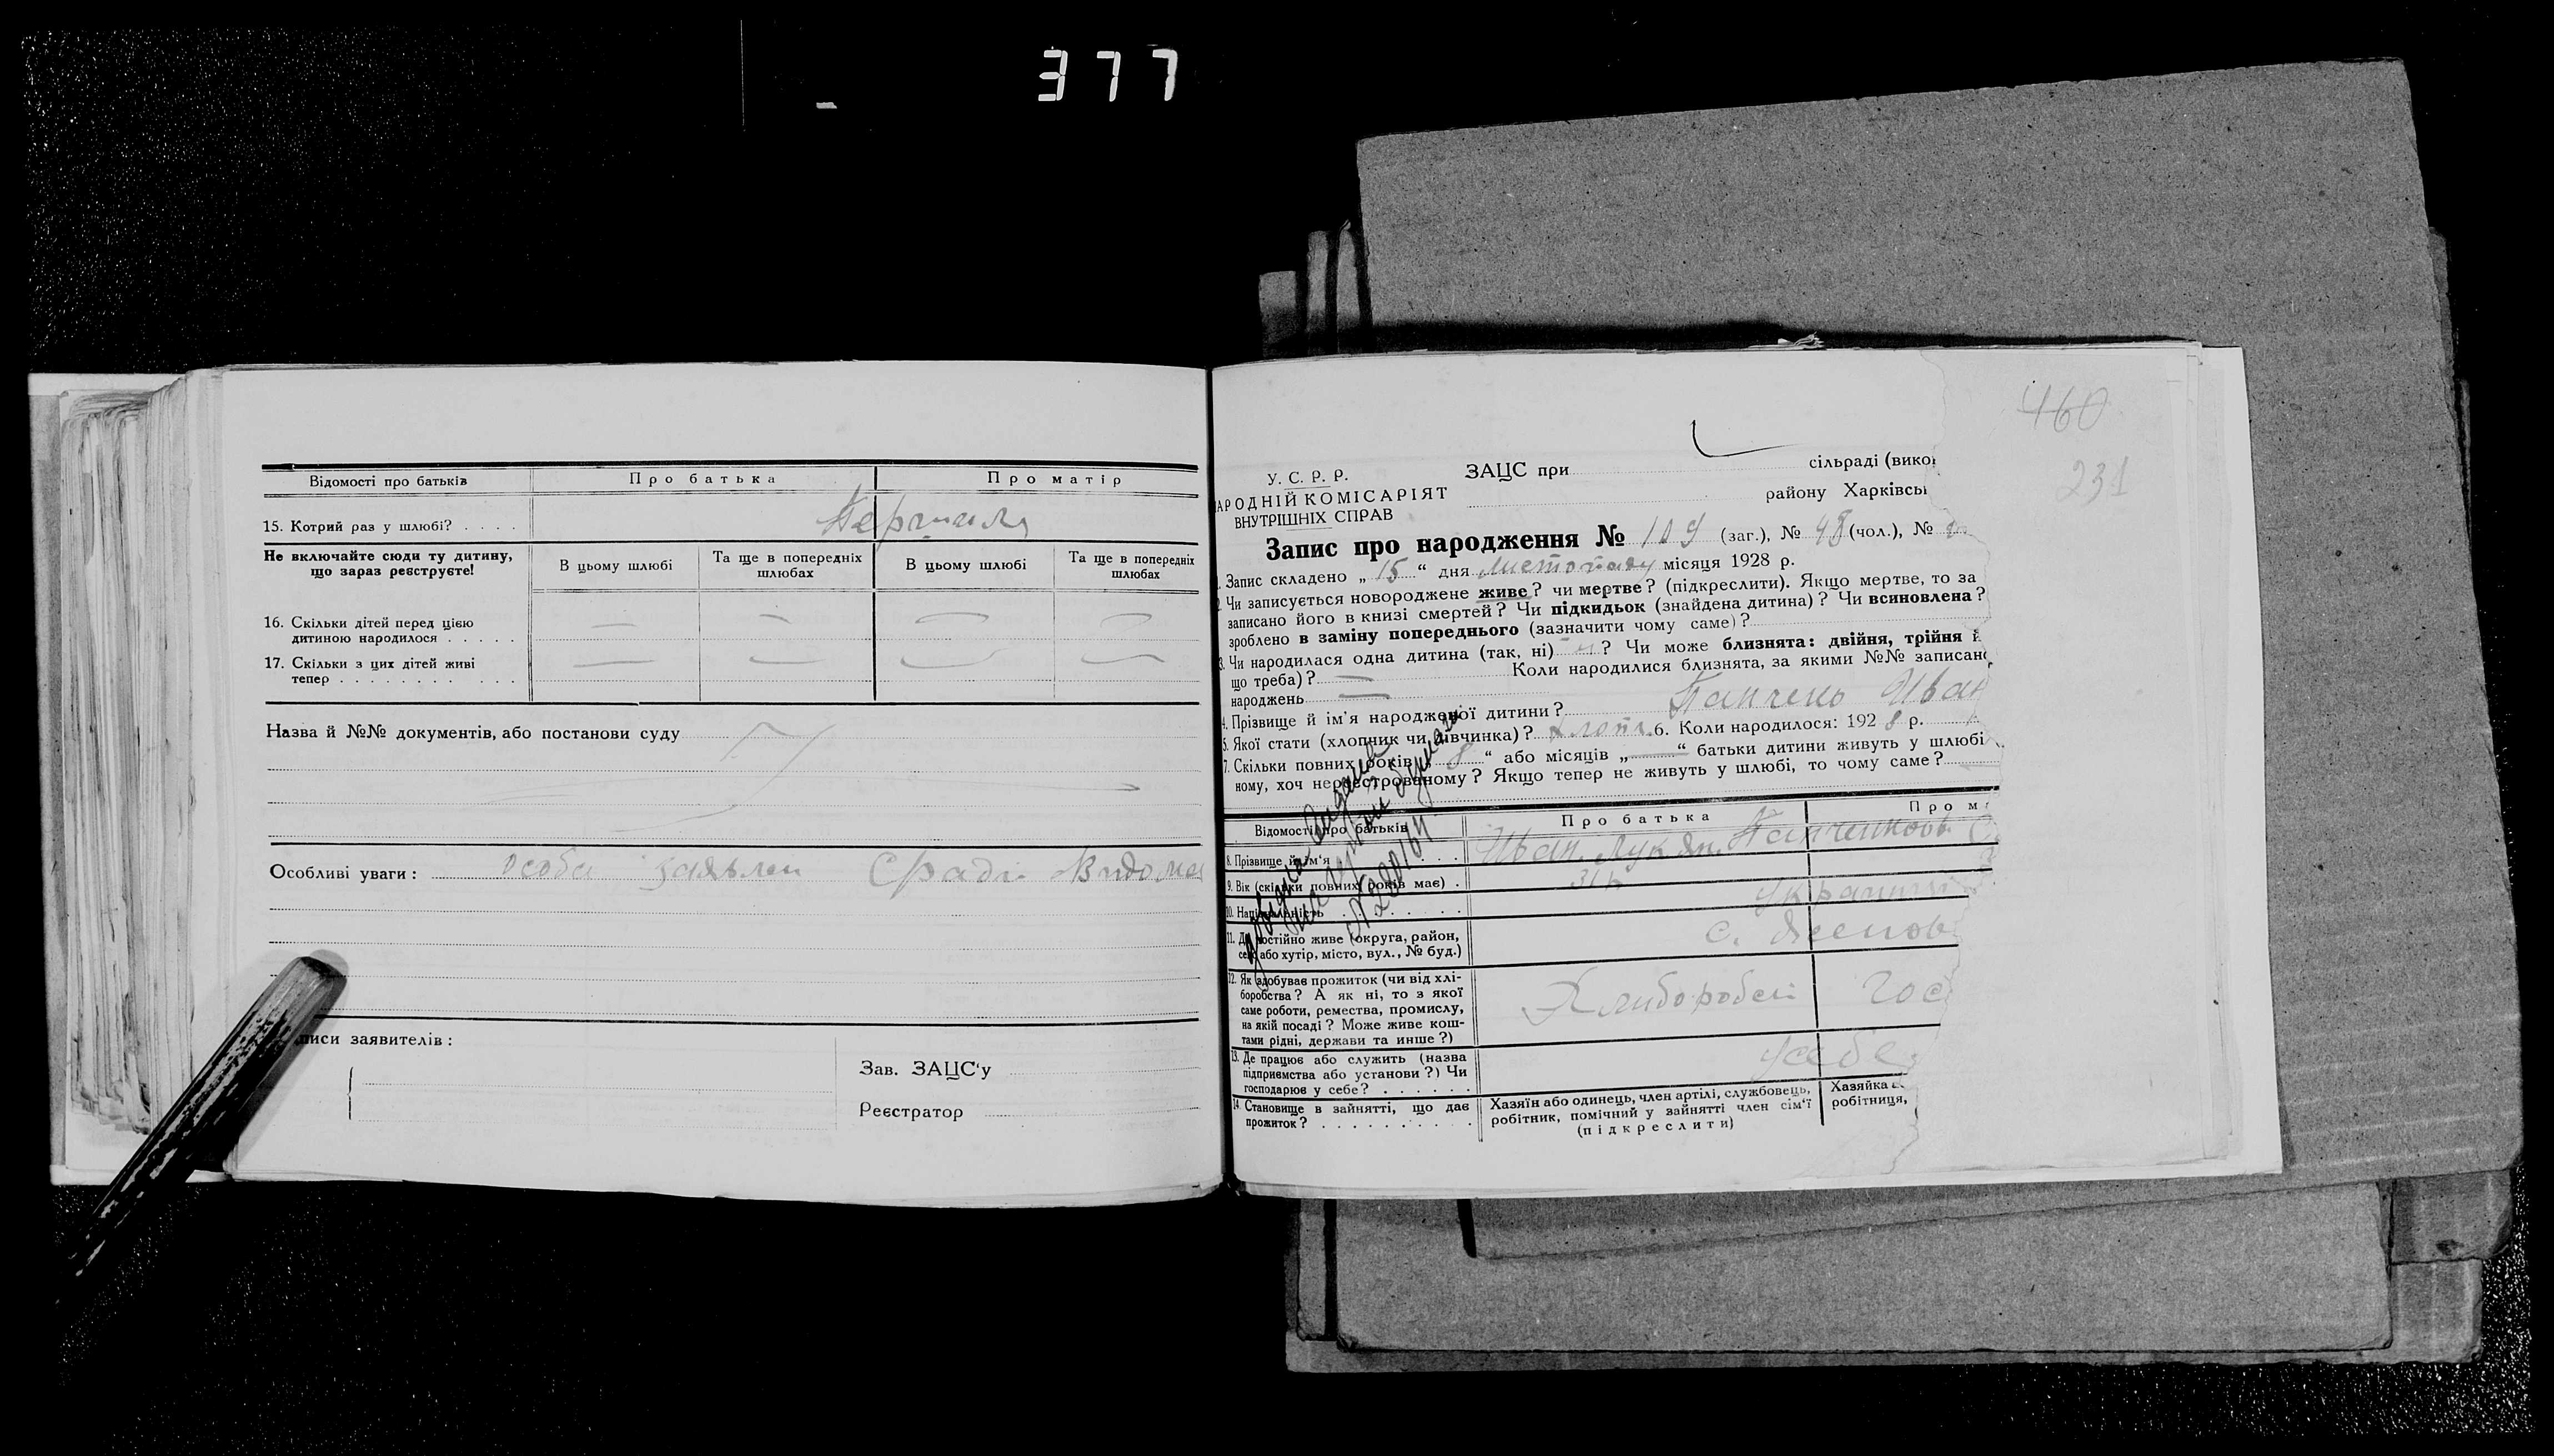 377
Відомості про батьків
Про батька
Про матір
15. Котрий раз у шлюбі? . . . .
Не включайте сюди ту дитину,
що зараз реєструєте!
В цьому шлюбі
Та ще в попередніх
шлюбах
В цьому шлюбі
Та ще в попередніх
шлюбах
16. Скільки дітей перед цією
дитиною народилося . . . . .
— — — —
17. Скільки з цих дітей живі
тепер . . . . . . . . . . .
— — — —
Назва й №№ документів, або постанови суду
Особливі уваги: особа заявлен Сради
писи заявителів:
Зав. ЗАЦС'у
Реєстратор
460
231
У. С. Р. Р.
АРОДНІЙ КОМІСАРІЯТ
ВНУТРІШНІХ СПРАВ
ЗАЦС при сільраді (вико
району Харківсь
Запис про народження № 109 (заг.), № 48 (чол.), №
1. Запис складено „15“ дня Листопаду місяця 1928 р.
2. Чи записується новороджене живе? чи мертве? (підкреслити). Якщо мертве, то за
записано його в книзі смертей? Чи підкидьок (знайдена дитина)? Чи всиновлена?
зроблено в заміну попереднього (зазначити чому саме)?
3. Чи народилася одна дитина (так, ні) ? Чи може близнята: двійня, трійня й
що треба)? — Коли народилися близнята, за якими №№ записано
народжень —
4. Прізвище й ім'я народженої дитини? Панченко Иван
5. Якої стати (хлопчик чи дівчинка)? хлопч. 6. Коли народилося: 1928 р.
7. Скільки повних років „8“ або місяців „—“ батьки дитини живуть у шлюбі
ному, хоч нереєстрованому? Якщо тепер не живуть у шлюбі, то чому саме?
Відомості про батьків
Про батька
Про м
8. Прізвище й ім'я . . . Иван. Лукян.
9. Вік (скільки повних років має) . 31 р
10. Національність . . . . . .
11. Де постійно живе (округа, район,
село або хутір, місто, вул., № буд.)
с.
12. Як здобуває прожиток (чи від хлі-
боробства? А як ні, то з якої
саме роботи, ремества, промислу,
на якій посаді? Може живе кош-
тами рідні, держави та инше?)
Хлиборобск гос
13. Де працює або служить (назва
підприємства або установи?) Чи
господарює у себе? . . . . . .
у себе
14. Становище в зайнятті, що дає
прожиток? . . . . . . . . . .
Хазяїн або одинець, член артілі, службовець,
робітник, помічний у зайнятті член сім'ї
(підкреслити)
Хазяйка
робітниця,